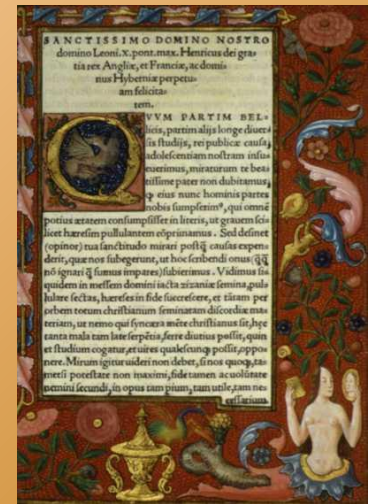 SANCTISSIMO DOMINO NOSTRO
domino Leoni.x.pont.max. Henricus dei gra-
tia rex Angliæ, et Franciæ, ac domi-
nus Hyberniæ perpetu-
am felicita-
tem.
QVVM PARTIM BEL-
licis, partim alijs longe diuer-
sis studijs, rei publicæ causa,
adolescentiam nostram insu-
euerimus, miraturum te bea-
tissime pater non dubitamus,
q eius nunc hominis partes
nobis sumpserimꝰ, qui omnē
potius ætatem consumpsisset in literis, ut grauem sci-
licet hæresim pullulantem cōprimamus. Sed desinet
(opinor) tua sanctitudo mirari postq̄ causas expen-
derit, quæ nos subegerunt, ut hoc scribendi onus (q̄q̄
nō ignari q̄ sumus impares) subierimus. Vidimus si-
quidem in messem domini iacta zizaniæ semina, pul-
lulare sectas, hæreses in fide succrescere, et tātam per
orbem totum christianum seminatam discordiæ ma-
teriam, ut nemo qui syncæra mēte christianus sit, hęc
tanta mala tam late serpētia, ferre diutius possit, quin
et studium cogatur, et uires qualescunq; possit, oppo-
nere. Mirum igitur uideri non debet, si nos quoq;, ta-
metsi potestate non maximi, fide tamen ac uolūtate
nemini secundi, in opus tam pium, tam utile, tam ne-
cessarium